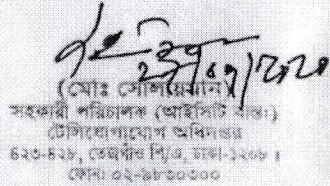 (মোঃ সোলায়মান)
সহকারী পরিচালক (আইসিটি বাস্তঃ)
টেলিযোগাযোগ অধিদপ্তর
৪২৩-৪২৮, তেজগাঁও শি/এ, ঢাকা-১২০৮।
ফোনঃ ০২-৯৮৩০৩০০